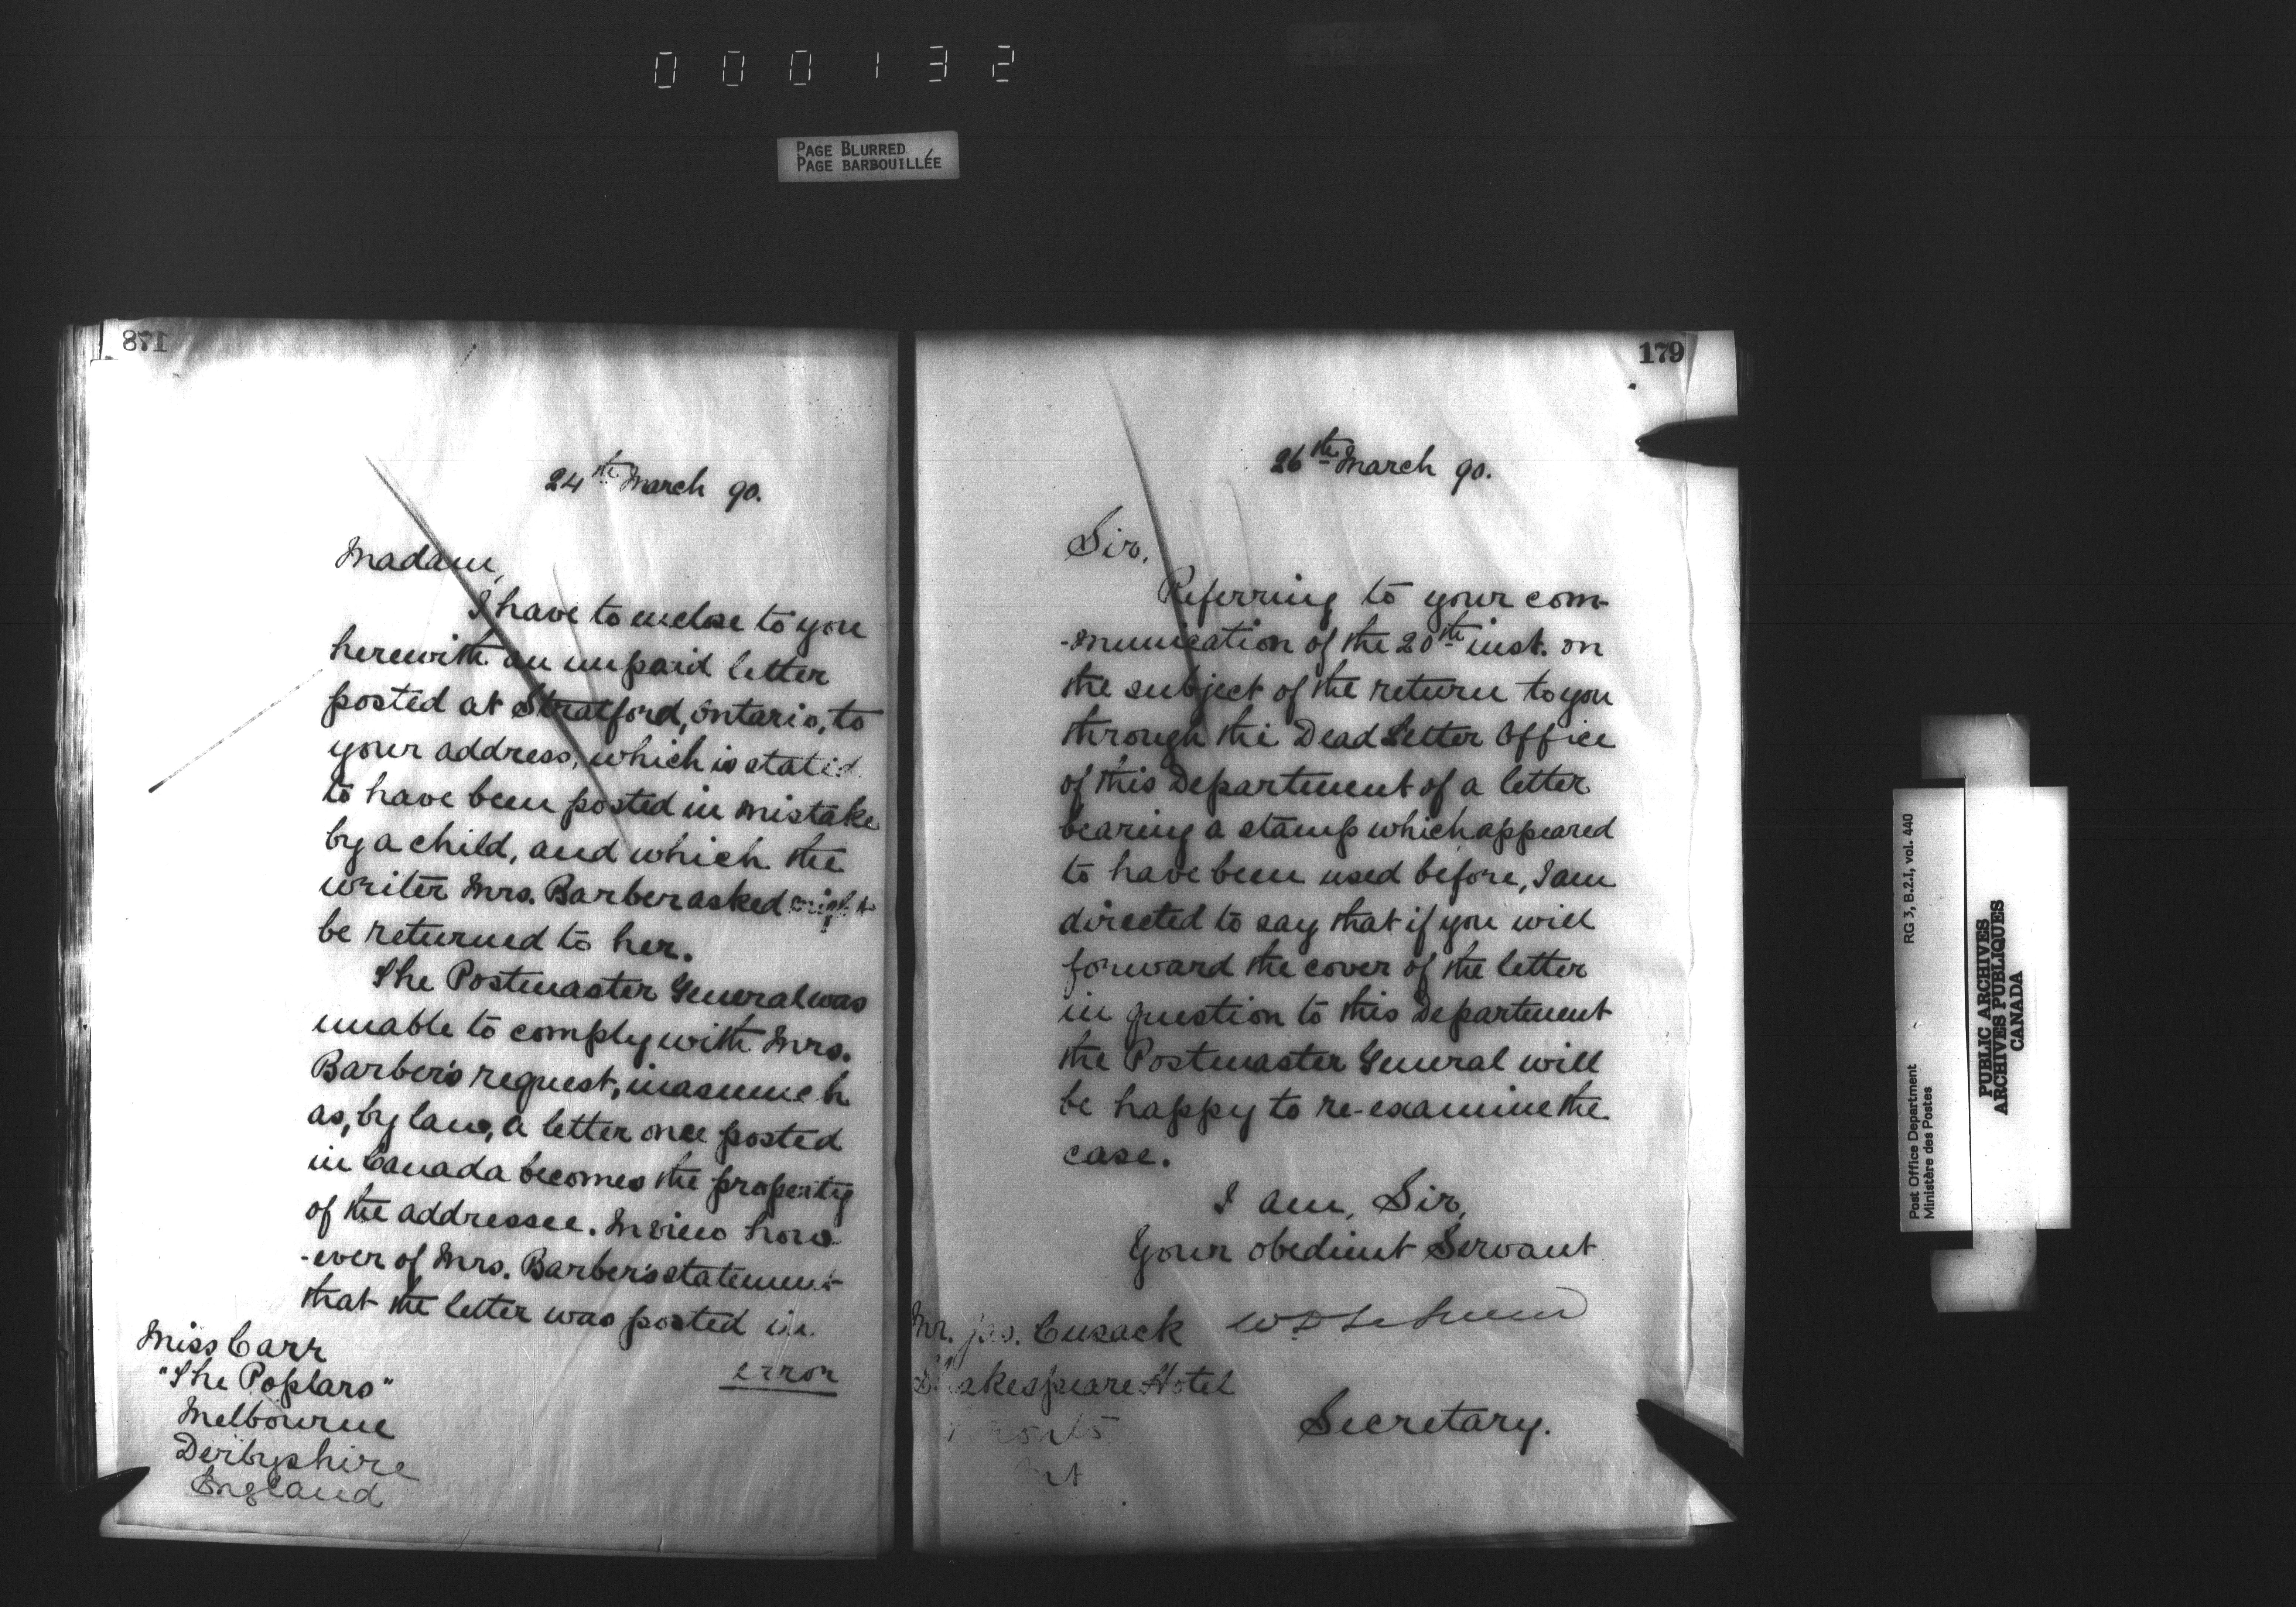 000132
PAGE BLURRED
PAGE BARBOUILLÉE
178
24th March 90.
Madam,
I have to enclose to you
herewith an unpaid letter
posted at Stratford, Ontario, to
your address, which is stated
to have been posted in mistake
by a child, and which the
writer Mrs. Barber asked might
be returned to her.
The Postmaster General was
unable to comply with Mrs.
Barber's request, inasmuch
as, by law, a letter once posted
in Canada becomes the property
of the addressee. In view how
-ever of Mrs. Barber's statement
that the letter was posted in
error
Miss Carr
"The Poplars"
Melbourne
Derbyshire
England
179
26th March 90.
Sir,
Referring to your com-
-munication of the 20th inst. on
the subject of the return to you
through the Dead Letter Office
of this Department of a letter
bearing a stamp which appeared
to have been used before, I am
directed to say that if you will
forward the cover of the letter
in question to this Department
the Postmaster General will
be happy to re-examine the
case.
I am, Sir,
Your obedient Servant
Mr. Jas. Cusack
Shakespeare Hotel
Secretary.
Post Office Department
Ministère des Postes
RG 3, B.2.1, vol. 440
PUBLIC ARCHIVES
ARCHIVES PUBLIQUES
CANADA